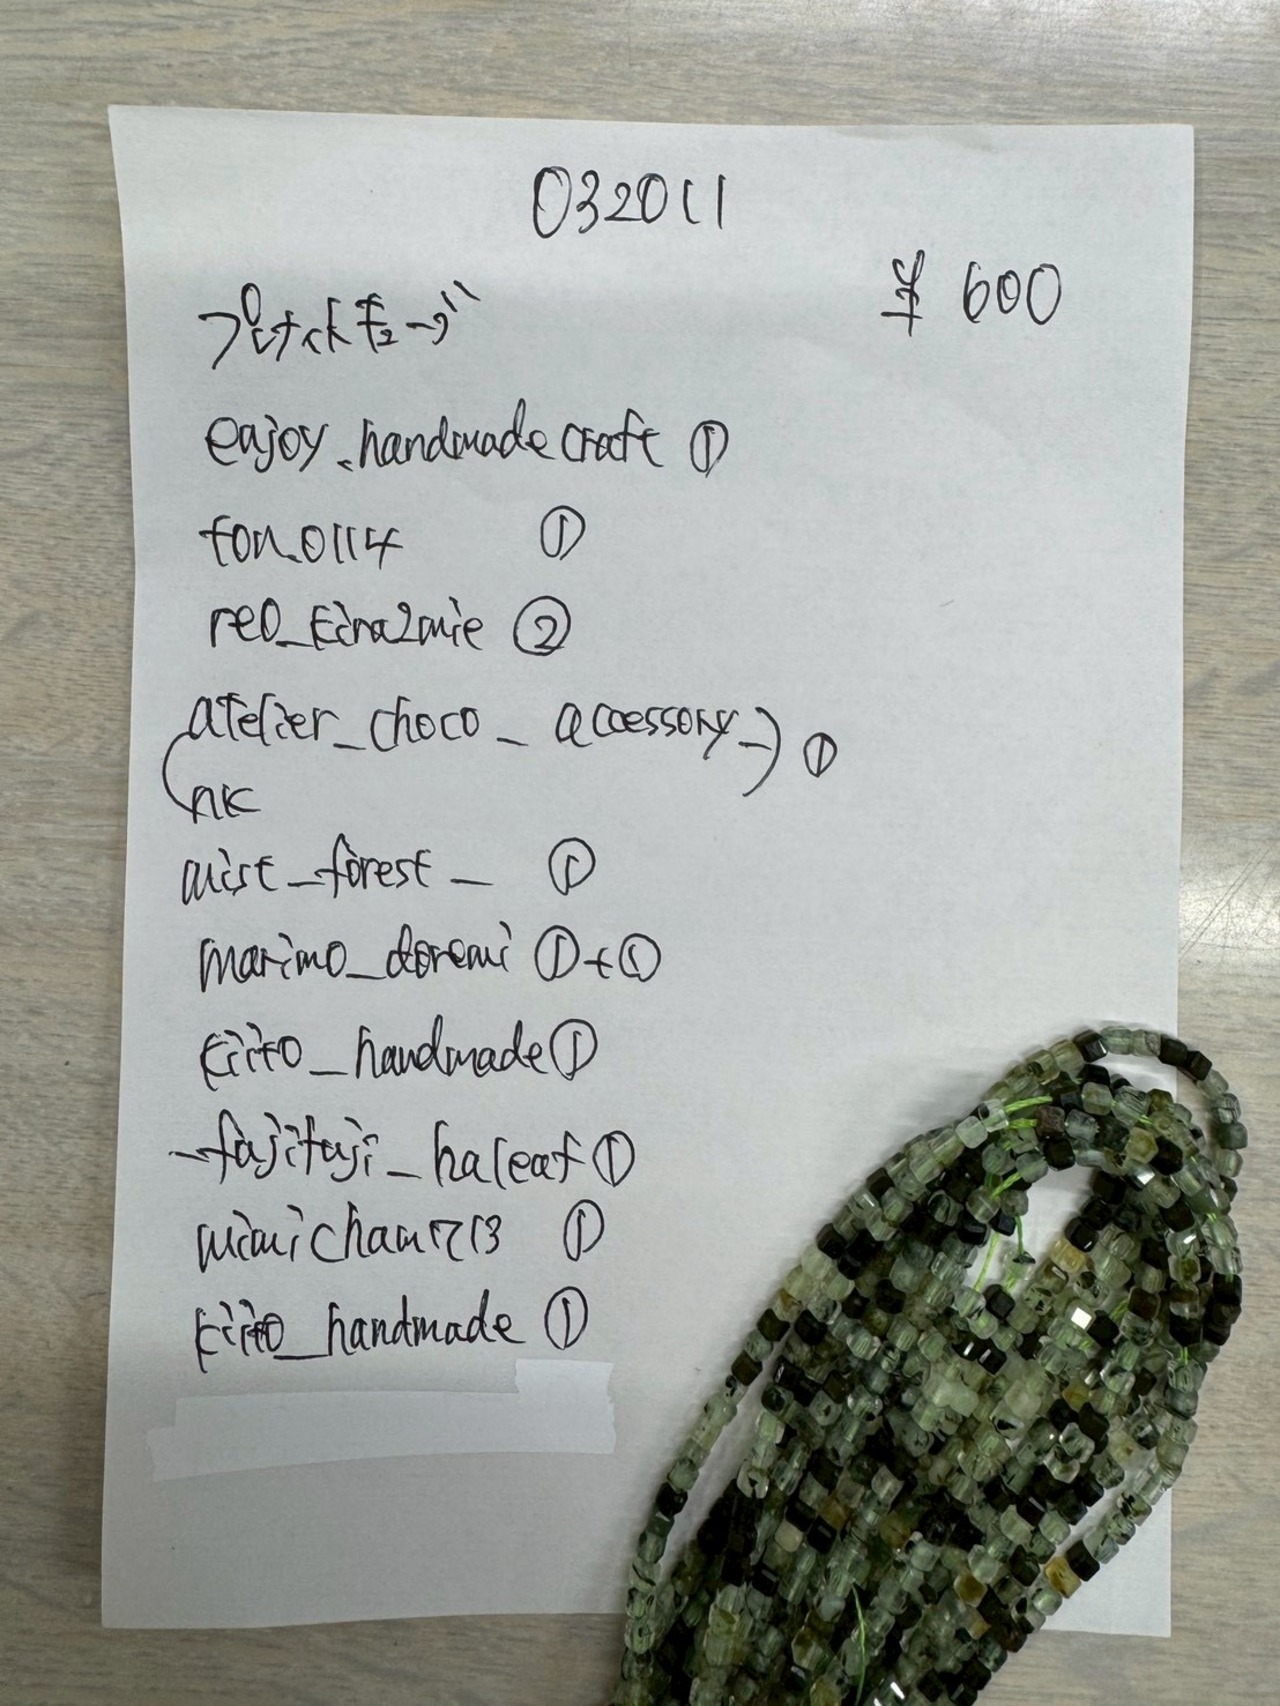 032011
¥ 600
プレナイトキューブ
enjoy.handmadecraft ①
ton.0114 ①
reo_kira2mie ②
atelier_choco_accessory_
nk ①
mist_forest_ ①
marimo_doremi ①+①
kiito_handmade ①
_fujifuji_haleaf ①
mimichan713 ①
kiito_handmade ①